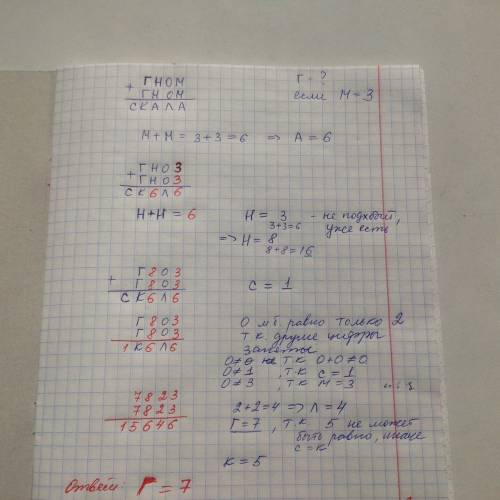 + ГНОМ Г - ?
ГНОМ если М = 3
СКАЛА
М + М = 3 + 3 = 6 => А = 6
+ ГНО3
ГНО3
СК6Л6
Н + Н = 6 Н = 3 - не подход,
3+3=6 уже есть
=> Н = 8
8+8=16
+ Г8О3 С = 1
Г8О3
СК6Л6
Г8О3 О м.б. равно только 2
Г8О3 т.к. другие цифры
1К6Л6 заняты
О≠0 т.к 0+0≠0
О≠1, т.к С = 1
О≠3, т.к М = 3
7823 2+2=4 => Л = 4
7823 Г = 7, т.к 5 не может
15646 быть равно, иначе
С = К
К = 5
Ответ: Г = 7